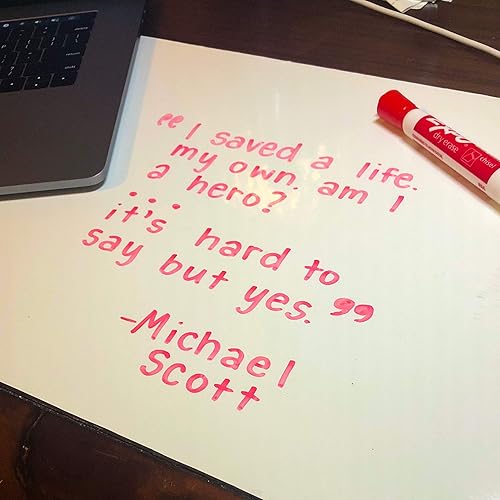 “I saved a life.
my own. am I
a hero?
...
it's hard to
say but yes.”
-Michael
Scott
EXPO
dry erase
chisel